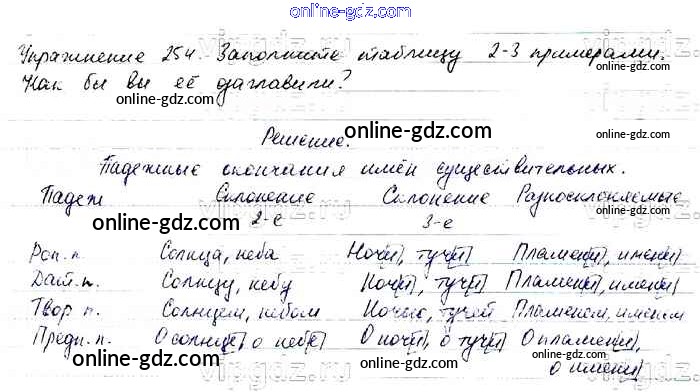 online-gdz.com
Упражнение 254. Заполните таблицу 2-3 примерами.
Как бы вы её озаглавили?
online-gdz.com
online-gdz.com
Решение.
online-gdz.com
Падежные окончания имён существительных.
Падеж Склонение Склонение Разносклоняемые
2-е 3-е
online-gdz.com
online-gdz.com
online-gdz.com
Род.п. Солнца, неба Ночи, тучи Пламени, имени
Дат.п. Солнцу, небу Ночи, тучи Пламени, имени
Твор п. Солнцем, небом Ночью, тучей Пламенем, именем
Предн.п. О солнце, о небе О ночи, о тучи О пламени,
о имени
online-gdz.com
online-gdz.com
online-gdz.com